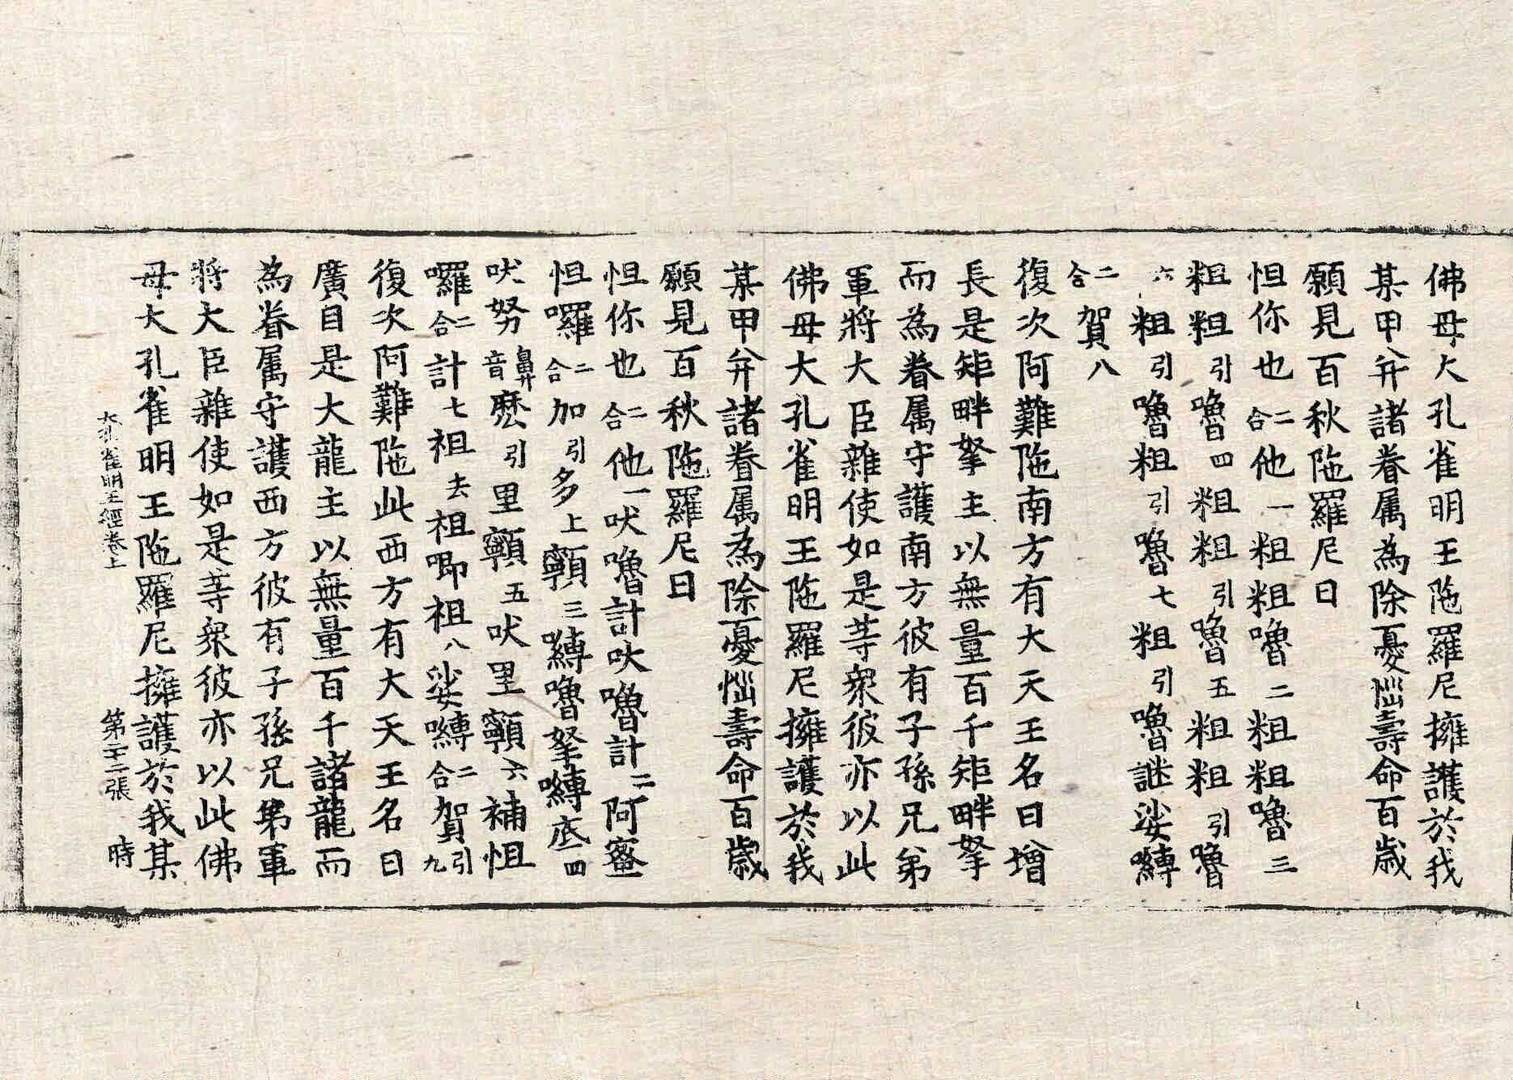 佛母大孔雀明王陁羅尼擁護於我
某甲并諸眷属為除憂惱壽命百歳
願見百秋陁羅尼曰
怛你也二合他一粗粗嚕二粗粗嚕三
粗粗引嚕四粗粗引嚕五粗粗引嚕
六粗引嚕粗引嚕七粗引嚕謎娑嚩
二合賀八
復次阿難陁南方有大天王名曰增
長是矩畔拏主以無量百千矩畔拏
而為眷属守護南方彼有子孫兄弟
軍將大臣雜使如是等衆彼亦以此
佛母大孔雀明王陁羅尼擁護於我
某甲并諸眷属為除憂惱壽命百歳
願見百秋陁羅尼曰
怛你也二合他一吠嚕計吠嚕計二阿蜜
怛囉二合加引多上顐三嚩嚕拏嚩底四
吠努鼻音麽引里顐五吠里顐六補怛
囉二合計七祖去祖唧祖八娑嚩二合賀引九
復次阿難陁此西方有大天王名曰
廣目是大龍主以無量百千諸龍而
為眷属守護西方彼有子孫兄弟軍
將大臣雜使如是等衆彼亦以此佛
母大孔雀明王陁羅尼擁護於我某
大孔雀明王經卷上 第二十二張 時